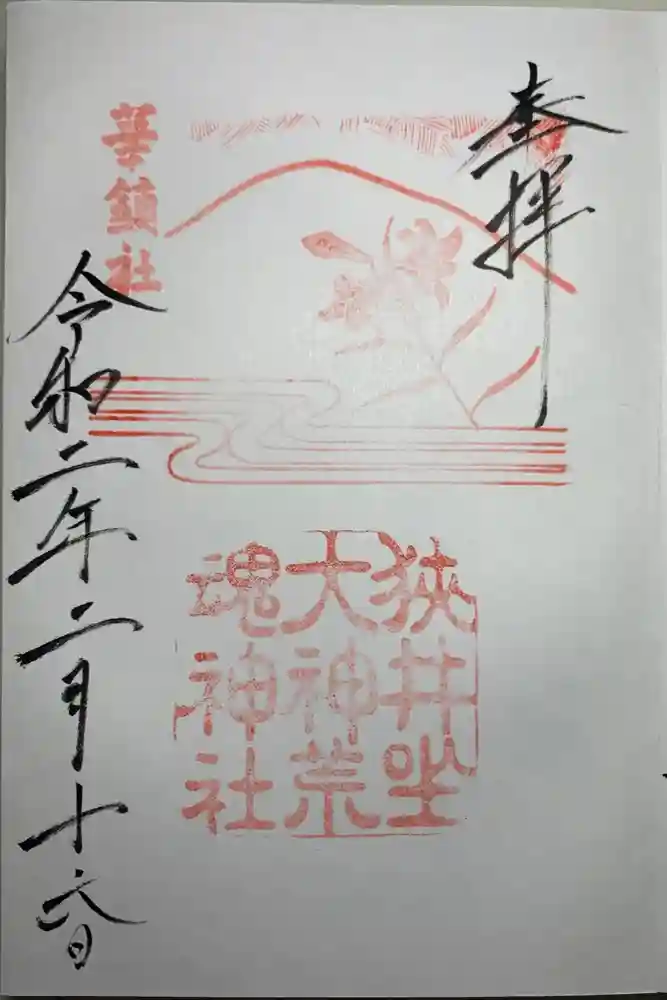 奉拝
狭井坐
大神荒
魂神社
華鎮社
令和二年二月十六日